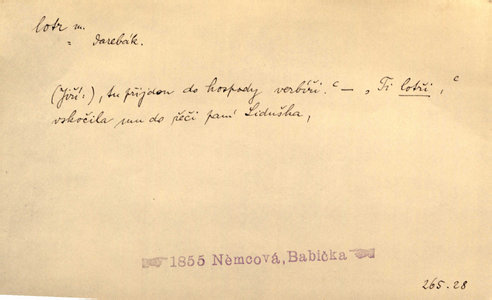 lotr m.
„ darebák.
(Jiří:) „tu přijdou do hospody verbíři.“ – „Ti lotři,“
vskočila mu do řeči paní Liduška,
1855 Němcová, Babička
265.28